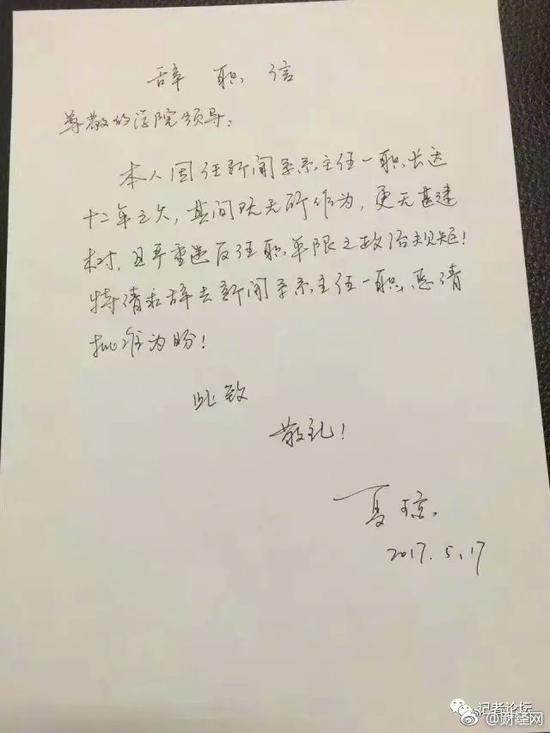 辞职信
尊敬的学院领导：
本人因任新闻系系主任一职长达
十二年之久，其间既无所作为，更无甚建
树，且严重违反任职年限之政治规矩！
特请求辞去新闻系系主任一职，恳请
批准为盼！
此致
敬礼！
夏琼
2017.5.17
记者论坛
@财经网